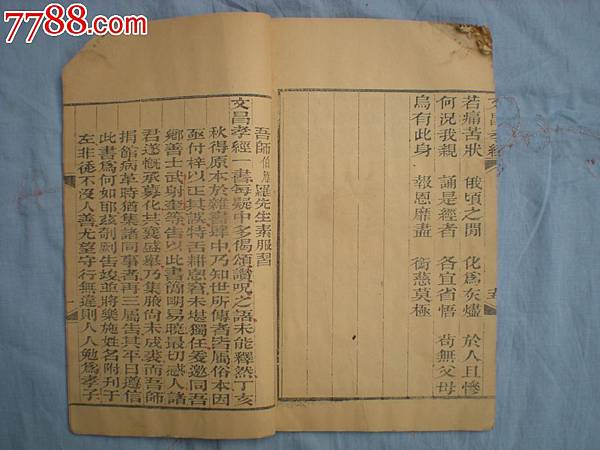 7788.com
文昌孝經
若痛苦狀 俄頃之間 化爲灰燼 於人且慘
何況我親 誦是經者 各宜省悟 苟無父母
烏有此身 報恩靡盡 銜慈莫極
吾師伯 先生素服習
文昌孝經一書每疑中多偈頌讚呪之語未能釋然丁亥
秋得原本於雜書肆中乃知世所傳者皆屬俗本因
亟付梓以正其誤特舌耕 未堪獨任爰邀同吾
鄉善士武 奎等告以此書簡明易曉最切感人諸
君遂慨承募化共襄盛舉乃集腋尚未成裘而吾師
捐館病革時猶集諸同事者再三屬告其平日遵信
此書爲何如耶茲剞劂告竣並將樂施姓名附刊于
左非徒不沒人善尤望守行無違則人人勉爲孝子